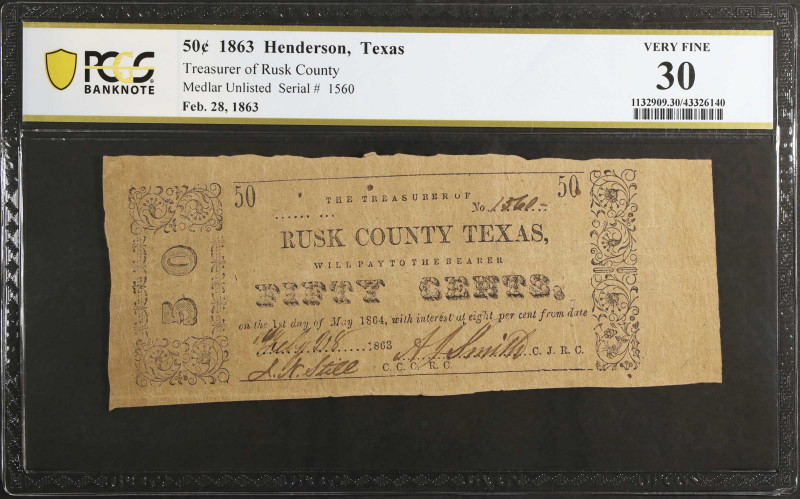 PCGS
BANKNOTE
50¢ 1863 Henderson, Texas
Treasurer of Rusk County
Medlar Unlisted Serial # 1560
Feb. 28, 1863
VERY FINE
30
1132909.30/43326140
50
50
THE TREASURER OF
No. 1560
RUSK COUNTY TEXAS,
WILL PAY TO THE BEARER
FIFTY CENTS,
on the 1st day of May 1864, with interest at eight per cent from date
Feby 28 1863 A J Smith C. J. R. C.
J. N. Still C. C. C. R. C.
50